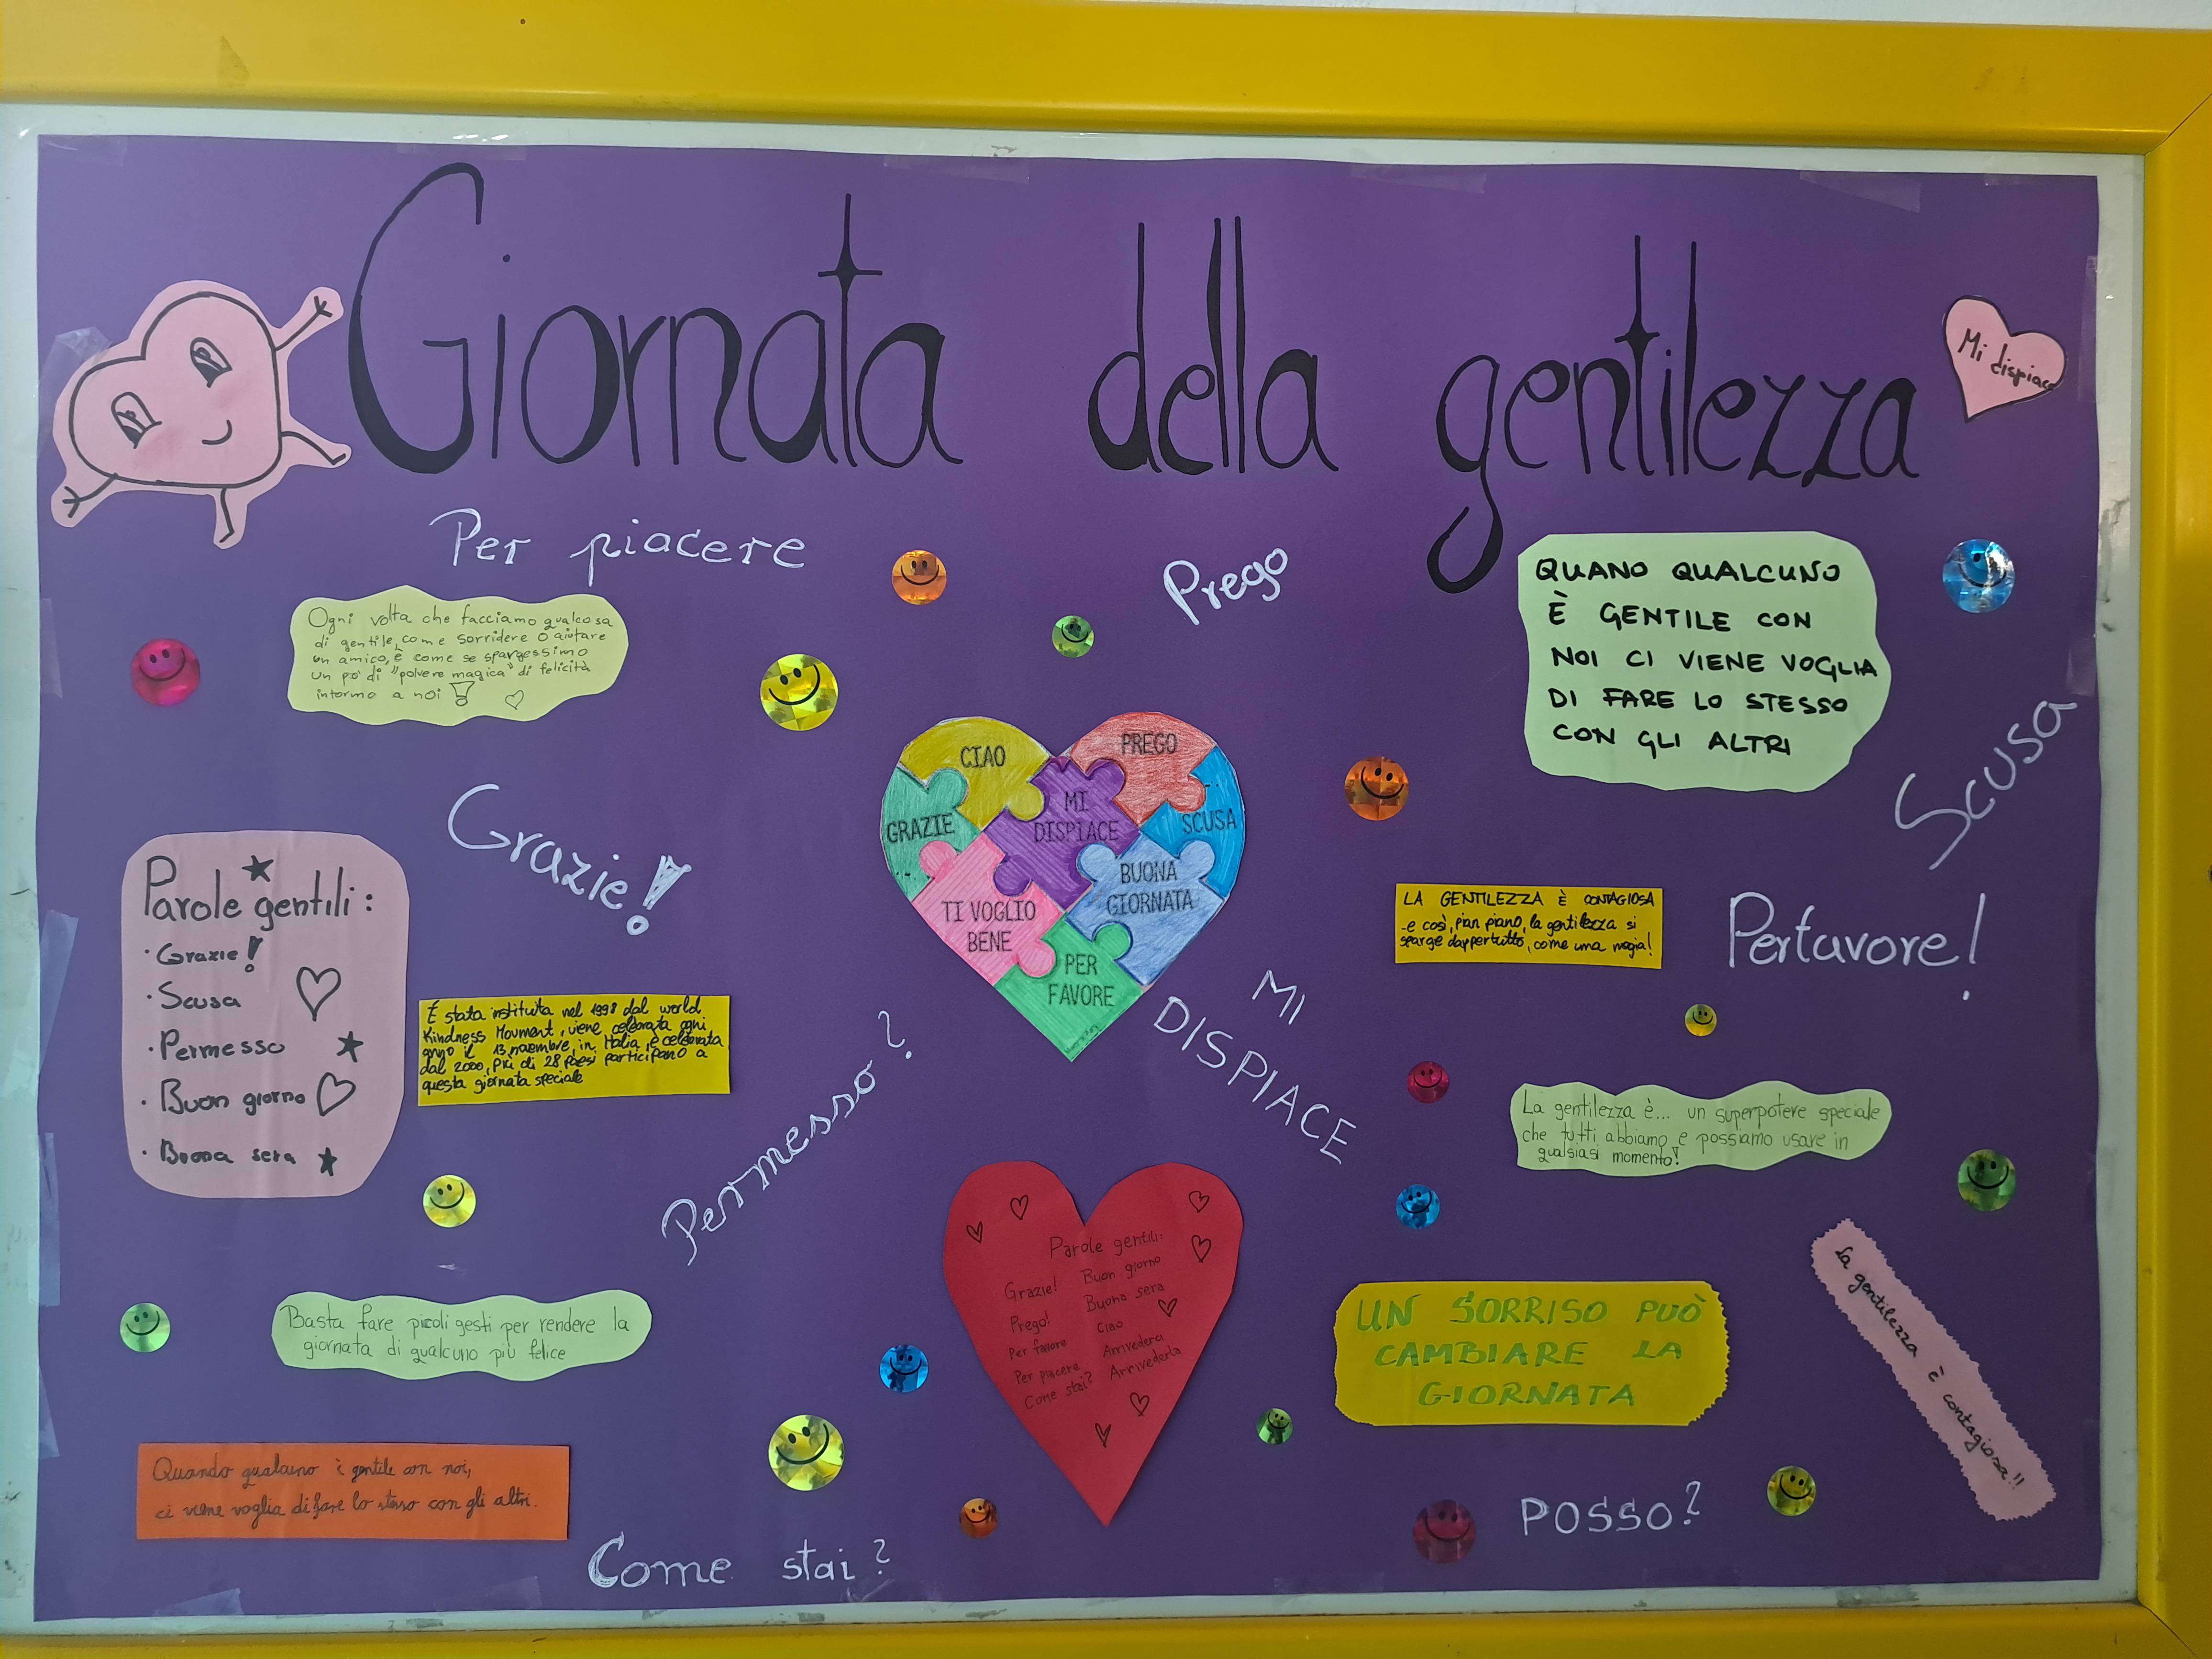 Giornata della gentilezza
Mi dispiace
Per piacere
Prego
Ogni volta che facciamo qualcosa
di gentile, come sorridere o aiutare
un amico, è come se spargessimo
un po' di "polvere magica" di felicità
intorno a noi!
QUANO QUALCUNO
È GENTILE CON
NOI CI VIENE VOGLIA
DI FARE LO STESSO
CON GLI ALTRI
Scusa
Grazie!
CIAO
PREGO
GRAZIE
MI
DISPIACE
SCUSA
BUONA
GIORNATA
TI VOGLIO
BENE
PER
FAVORE
Parole gentili:
· Grazie!
· Scusa
· Permesso
· Buon giorno
· Buona sera
È stata instituita nel 1998 dal world
Kindness Movment, viene celebrata ogni
anno il 13 novembre, in Italia è celebrata
dal 2000, più di 28 paesi participano a
questa giornata speciale
LA GENTILEZZA È CONTAGIOSA
-e così, pian piano, la gentilezza si
sparge dappertutto, come una magia!
Perfavore!
MI
DISPIACE
Permesso?
La gentilezza è... un superpotere speciale
che tutti abbiamo e possiamo usare in
qualsiasi momento!
Parole gentili:
Grazie! Buon giorno
Prego! Buona sera
Per favore Ciao
Per piacere Arrivederci
Come stai? Arrivederla
Basta fare piccoli gesti per rendere la
giornata di qualcuno più felice
UN SORRISO PUÒ
CAMBIARE LA
GIORNATA
La gentilezza è contagiosa!!
Quando qualcuno è gentile con noi,
ci viene voglia di fare lo stesso con gli altri.
Come stai?
POSSO?